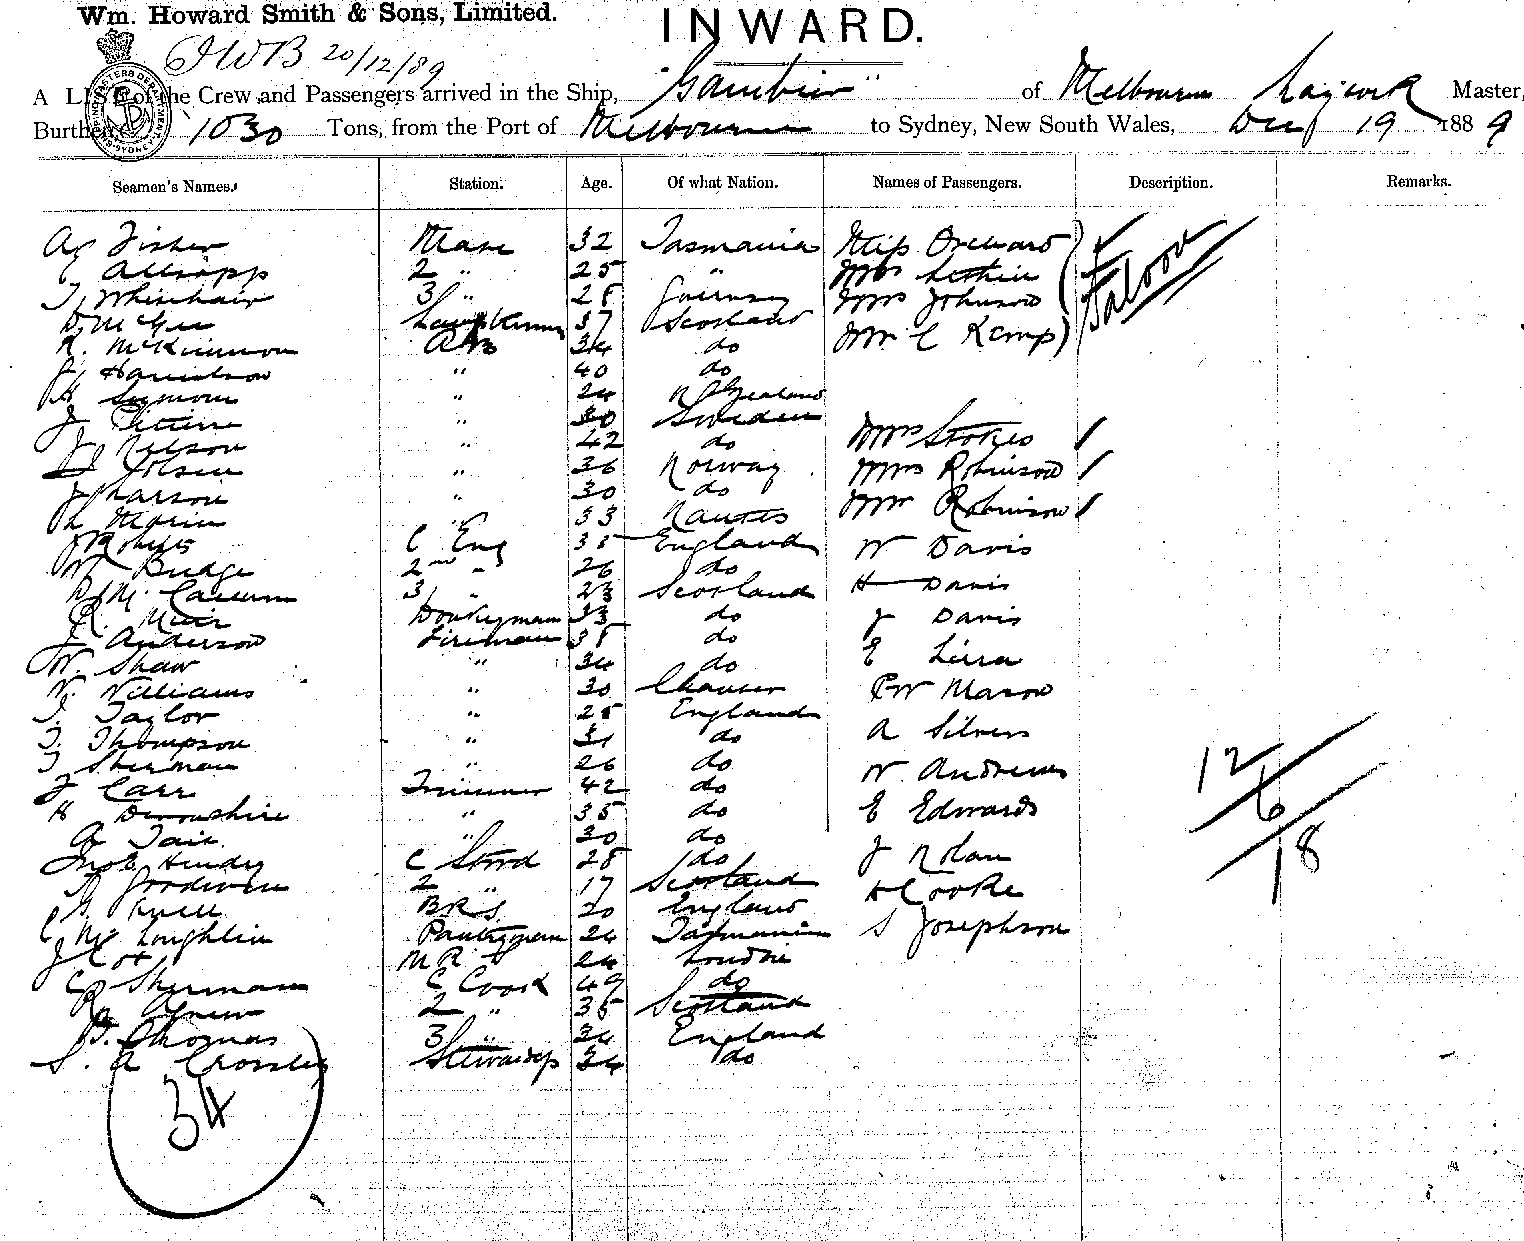 Wm. Howard Smith & Sons, Limited.
INWARD.
JWB 20/12/89
A LIST of the Crew and Passengers arrived in the Ship, "Gambier" of Melbourne Master,
Burthen 1030 Tons, from the Port of Melbourne to Sydney, New South Wales, Decr 19 1889
Seamen's Names. Station. Age. Of what Nation. Names of Passengers. Description. Remarks.
A Fisher Mate 32 Tasmania Miss Orchard Saloon
Allsopp 2 " 25 " Mrs
3 " 28 Guernsey Mrs Johnson
D McGee Lampkeeper 37 Scotland Mr C Kemp
R. McKinnon AB 34 do
40 do
H Seymour " 24 N Zealand
J 30 Sweden
J Nelson " 42 do Mrs Stokes
" 36 Norway Mrs Robinson
J Larson " 30 do
L Morin " 33 Nantes Mr Robinson
J Roberts C Eng 38 England W Davis
W Budge 2nd " 26 do
D Mc Callum 3 " 23 Scotland H Davis
R. Muir Donkeyman 33 do J Davis
J Anderson Fireman 38 do
W. Shaw " 34 do E
W. Williams " 30 P W Mason
T. Taylor " 28 England
T. Thompson " 31 do A Silvers
T Sherman " 26 do W. Andrews
J Carr Trimmer 42 do
H Devonshire " 35 do E Edwards
A Tait " 30 do
Jno E Hendy C Stwd 28 do J Nolan
Goodwin 2 " 17 Scotland H Cooke
Knell BRS 20 England
C Mc Loughlin Pantryman 24 Tasmania S Josephson
J Cox M R S 24 London
C Sherman C Cook 49 do
R Agnew 2 " 35 Scotland
Thomas 3 " 34 England
S. A Crossley Stewardess 34 do
12
6
18
34